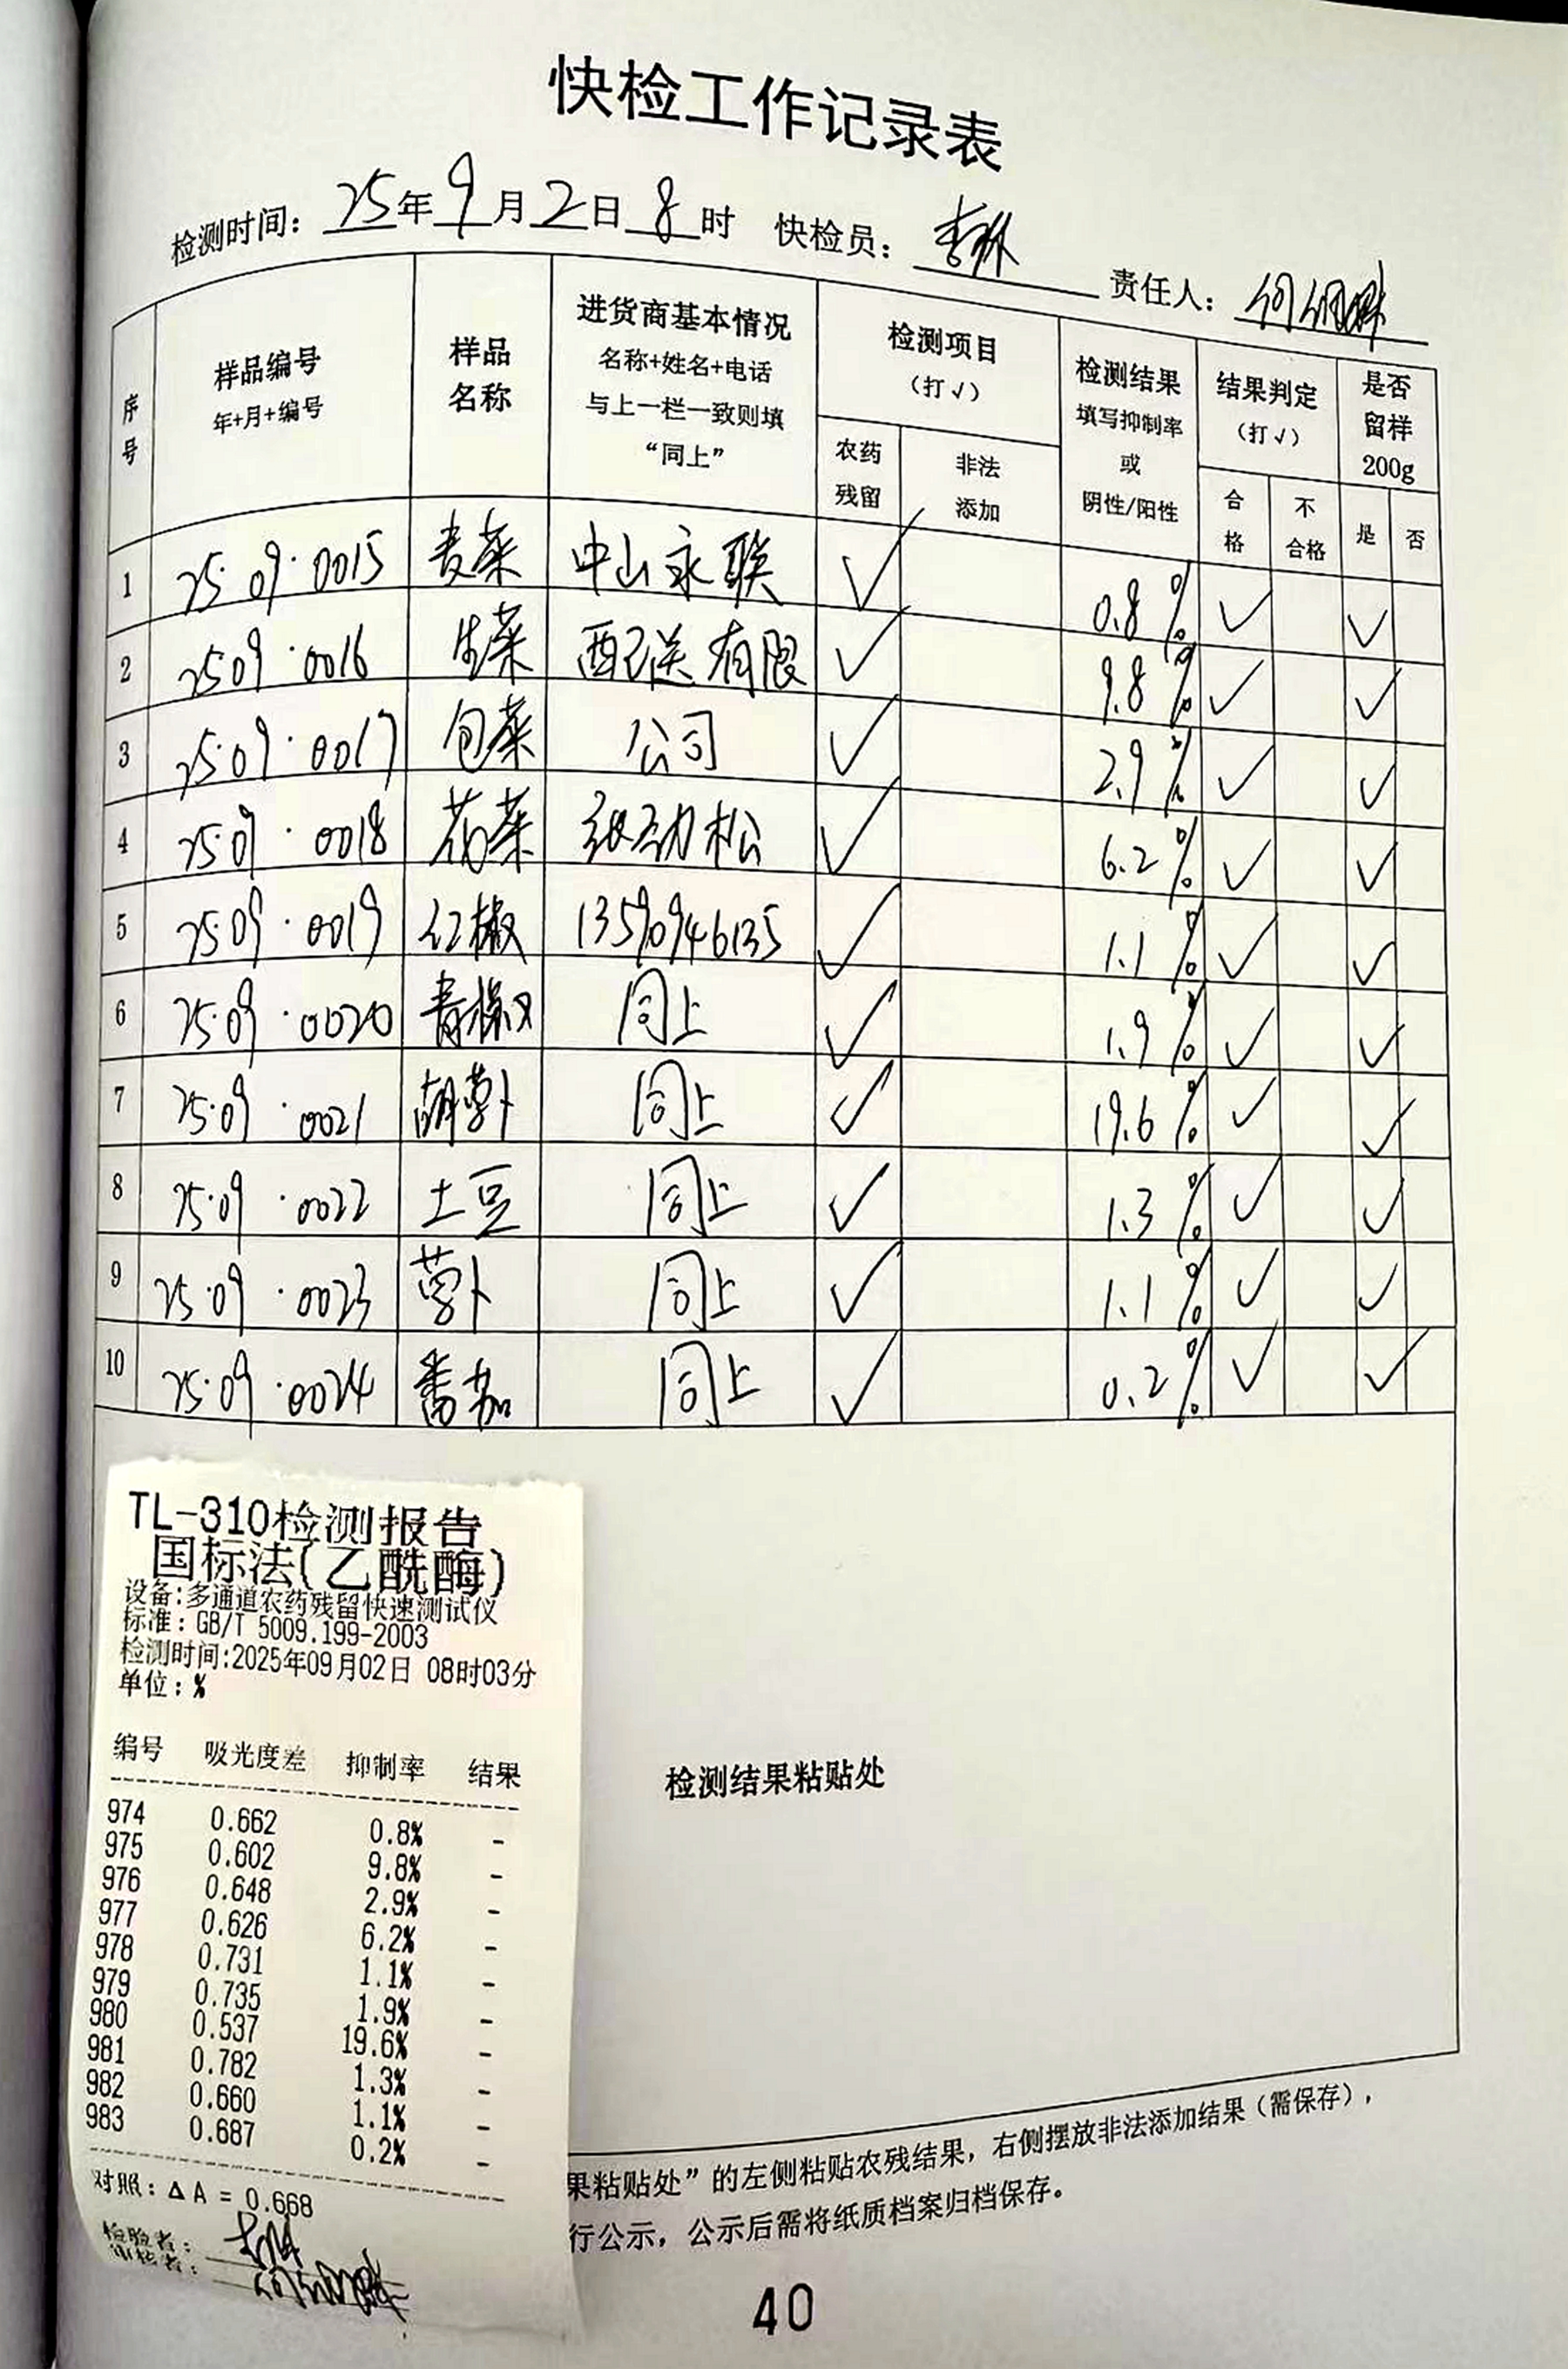 快检工作记录表
检测时间：25年9月2日8时 快检员： 责任人：
序号 样品编号 年+月+编号 样品名称 进货商基本情况 名称+姓名+电话 与上一栏一致则填“同上” 检测项目（打√） 农药残留 非法添加 检测结果 填写抑制率或阴性/阳性 结果判定（打√） 合格 不合格 是否留样200g 是 否
1 25·09·0015 麦菜 中山永联 √ 0.8% √ √
2 25·09·0016 生菜 配送有限 √ 9.8% √ √
3 25·09·0017 包菜 公司 √ 2.9% √ √
4 25·09·0018 花菜 劲松 √ 6.2% √ √
5 25·09·0019 红椒 13590946135 √ 1.1% √ √
6 25·09·0020 青椒 同上 √ 1.9% √ √
7 25·09·0021 胡萝卜 同上 √ 19.6% √ √
8 25·09·0022 土豆 同上 √ 1.3% √ √
9 25·09·0023 萝卜 同上 √ 1.1% √ √
10 25·09·0024 番茄 同上 √ 0.2% √ √
TL-310检测报告
国标法(乙酰酶)
设备:多通道农药残留快速测试仪
标准：GB/T 5009.199-2003
检测时间:2025年09月02日 08时03分
单位：%
编号 吸光度差 抑制率 结果
974 0.662 0.8% -
975 0.602 9.8% -
976 0.648 2.9% -
977 0.626 6.2% -
978 0.731 1.1% -
979 0.735 1.9% -
980 0.537 19.6% -
981 0.782 1.3% -
982 0.660 1.1% -
983 0.687 0.2% -
对照：ΔA = 0.668
检验者：
审核者：
检测结果粘贴处
果粘贴处”的左侧粘贴农残结果，右侧摆放非法添加结果（需保存），
行公示，公示后需将纸质档案归档保存。
40